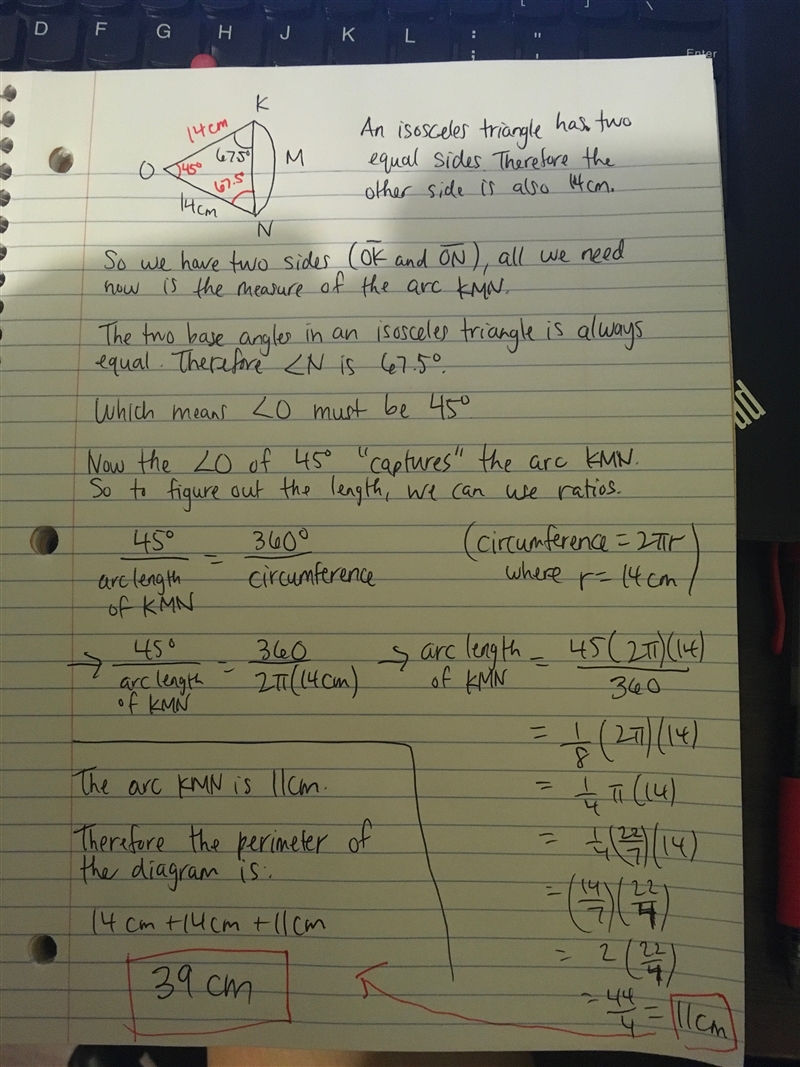 D F G H J K L : ; "
Enter
K
14cm
O
45°
67.5°
67.5°
M
14cm
N
An isosceles triangle has two
equal sides. Therefore the
other side is also 14cm.
So we have two sides (OK and ON), all we need
now is the measure of the arc KMN.
The two base angles in an isosceles triangle is always
equal. Therefore ∠N is 67.5°.
Which means ∠O must be 45°
Now the ∠O of 45° "captures" the arc KMN.
So to figure out the length, we can use ratios.
45° / arc length of KMN = 360° / circumference
(circumference = 2πr
where r = 14cm)
→ 45° / arc length of KMN = 360 / 2π(14cm) → arc length of KMN = 45(2π)(14) / 360
= 1/8 (2π)(14)
= 1/4 π(14)
= 1/4 (22/7)(14)
= (14/7)(22/4)
= 2(22/4)
= 44/4 = 11cm
The arc KMN is 11cm.
Therefore the perimeter of
the diagram is:
14cm + 14cm + 11cm
39 cm